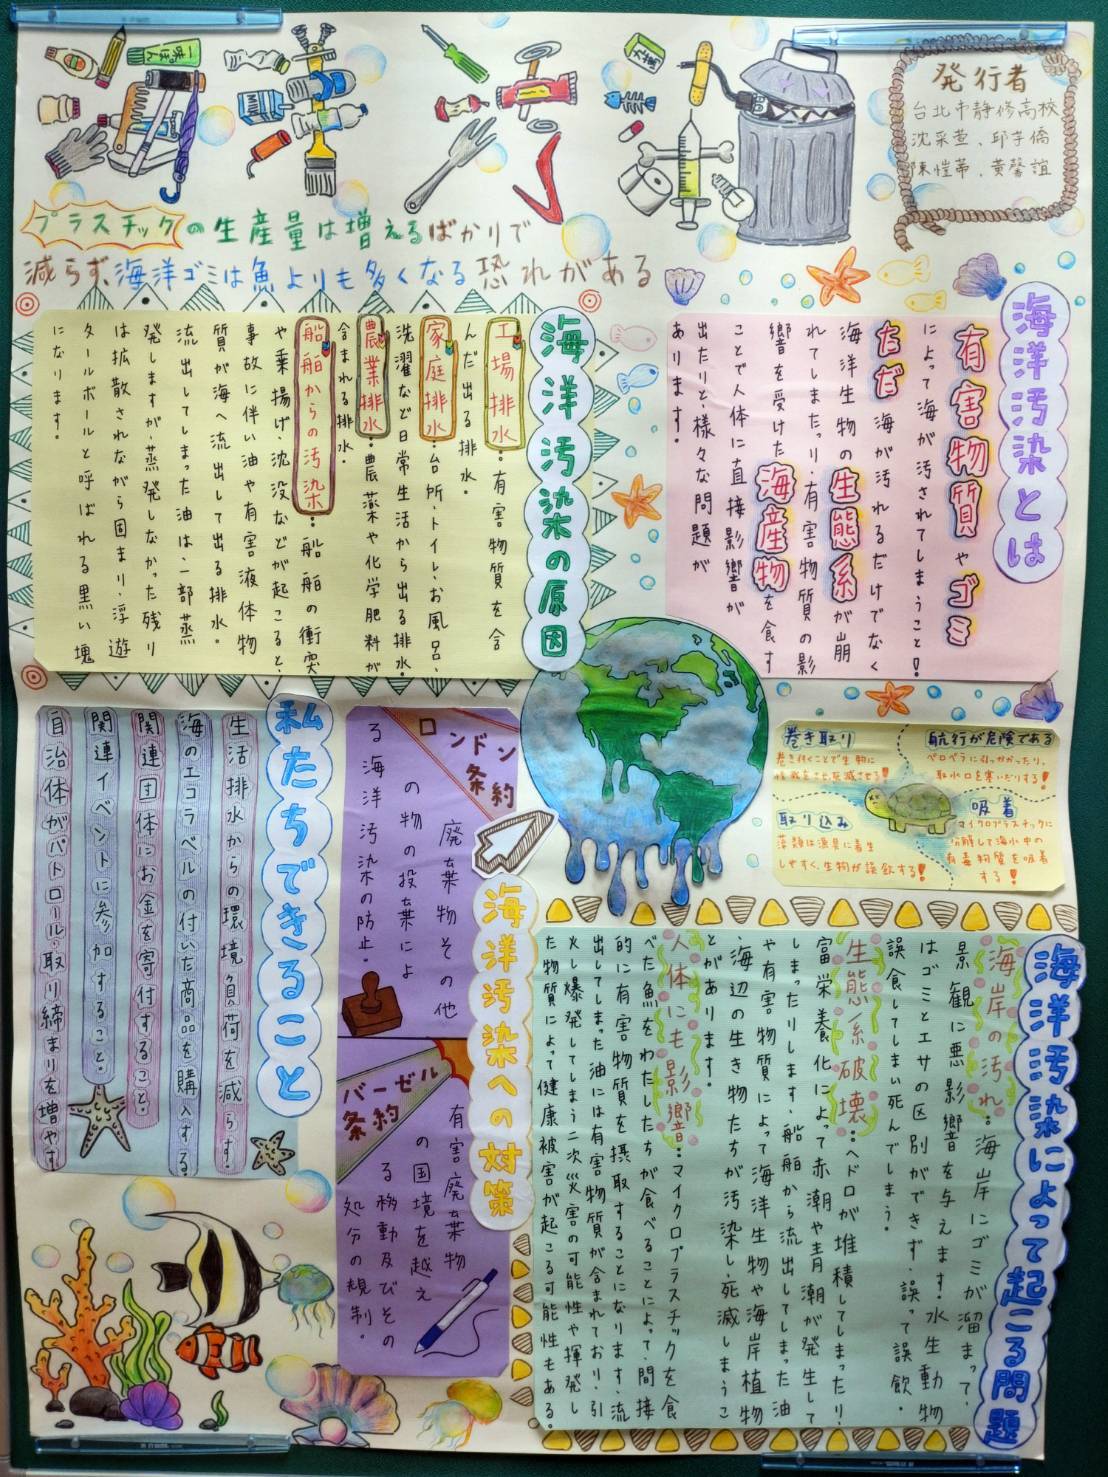 一味ぽん
MILK
大蒜
発行者
台北市静修高校
沈采萱、邱芓僑
陳愷蒂、黄馨誼
プラスチックの生産量は増えるばかりで
減らず、海洋ゴミは魚よりも多くなる恐れがある
海洋汚染とは
有害物質やゴミ
によって海が汚されてしまうこと！
ただ海が汚れるだけでなく
海洋生物の生態系が崩
れてしまたり、有害物質の影
響を受けた海産物を食す
ことで人体に直接影響が
出たりと、様々な問題が
あります。
海洋汚染の原因
工場排水：有害物質を含
んだ出る排水。
家庭排水：台所、トイレ、お風呂、
洗濯など日常生活から出る排水。
農業排水：農薬や化学肥料が
含まれる排水。
船舶からの汚染：船舶の衝突
や乗揚げ、沈没などが起こると、
事故に伴い油や有害液体物
質が海へ流出して出る排水。
流出してしまった油は、一部蒸
発しますが、蒸発しなかった残り
は拡散されながら固まり、浮遊
タールボールと呼ばれる黒い塊
になります。
航行が危険である
ペロペラに引っかかったり、
取水口を塞いだりする！
巻き取り
巻き付くことで生物に
怪我をさせ死滅させる！
吸着
マイクロプラスチックに
分解して海水中の
有毒物質を吸着
する！
取り込み
藻類は漁具に着生
しやすく、生物が誤飲する！
海洋汚染によって起こる問題
海岸の汚れ：海岸にゴミが溜まって、
景観に悪影響を与えます！水生動物
はゴミとエサの区別ができず、誤って誤飲、
誤食してしまい死んでしまう。
生態系破壊：ヘドロが堆積してしまったり、
富栄養化によって赤潮や青潮が発生して
しまったりします、船から流出してしまった油
や有害物質によって海洋生物や海岸植物
、海辺の生き物たちが汚染し死滅しまうこ
とがあります。
人体にも影響：マイクロプラスチックを食
べた魚をわたしたちが食べることによって、間接
的に有害物質を摂取することになります、流
出してしまった油には有害物質が含まれており、引
火し爆発してしまう二次災害の可能性や揮発し
た物質によって健康被害が起こる可能性もある。
海洋汚染への対策
ロンドン条約
廃棄物その他
の物の投棄によ
る海洋汚染の防止。
バーゼル条約
有害廃棄物
の国境を越え
る移動及びその
処分の規制。
私たちできること
生活排水からの環境負荷を減らす！
海のエコラベルの付いた商品を購入する
関連団体にお金を寄付すること。
関連イベントに参加すること。
自治体がパトロール・取り締まりを増やす